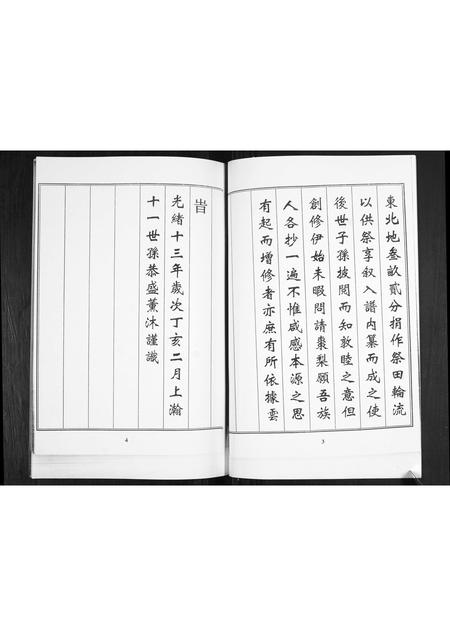 東北地叁畝貳分捐作祭田輪流
以供祭享叙入譜內纂而成之使
後世子孫披閱而知敦睦之意但
創修伊始未暇問請棗梨願吾族
人各抄一遍不惟咸感本源之思
有起而增修者亦庶有所依據雲
3
旹
光緒十三年歲次丁亥二月上瀚
十一世孫恭盛薰沐謹識
4